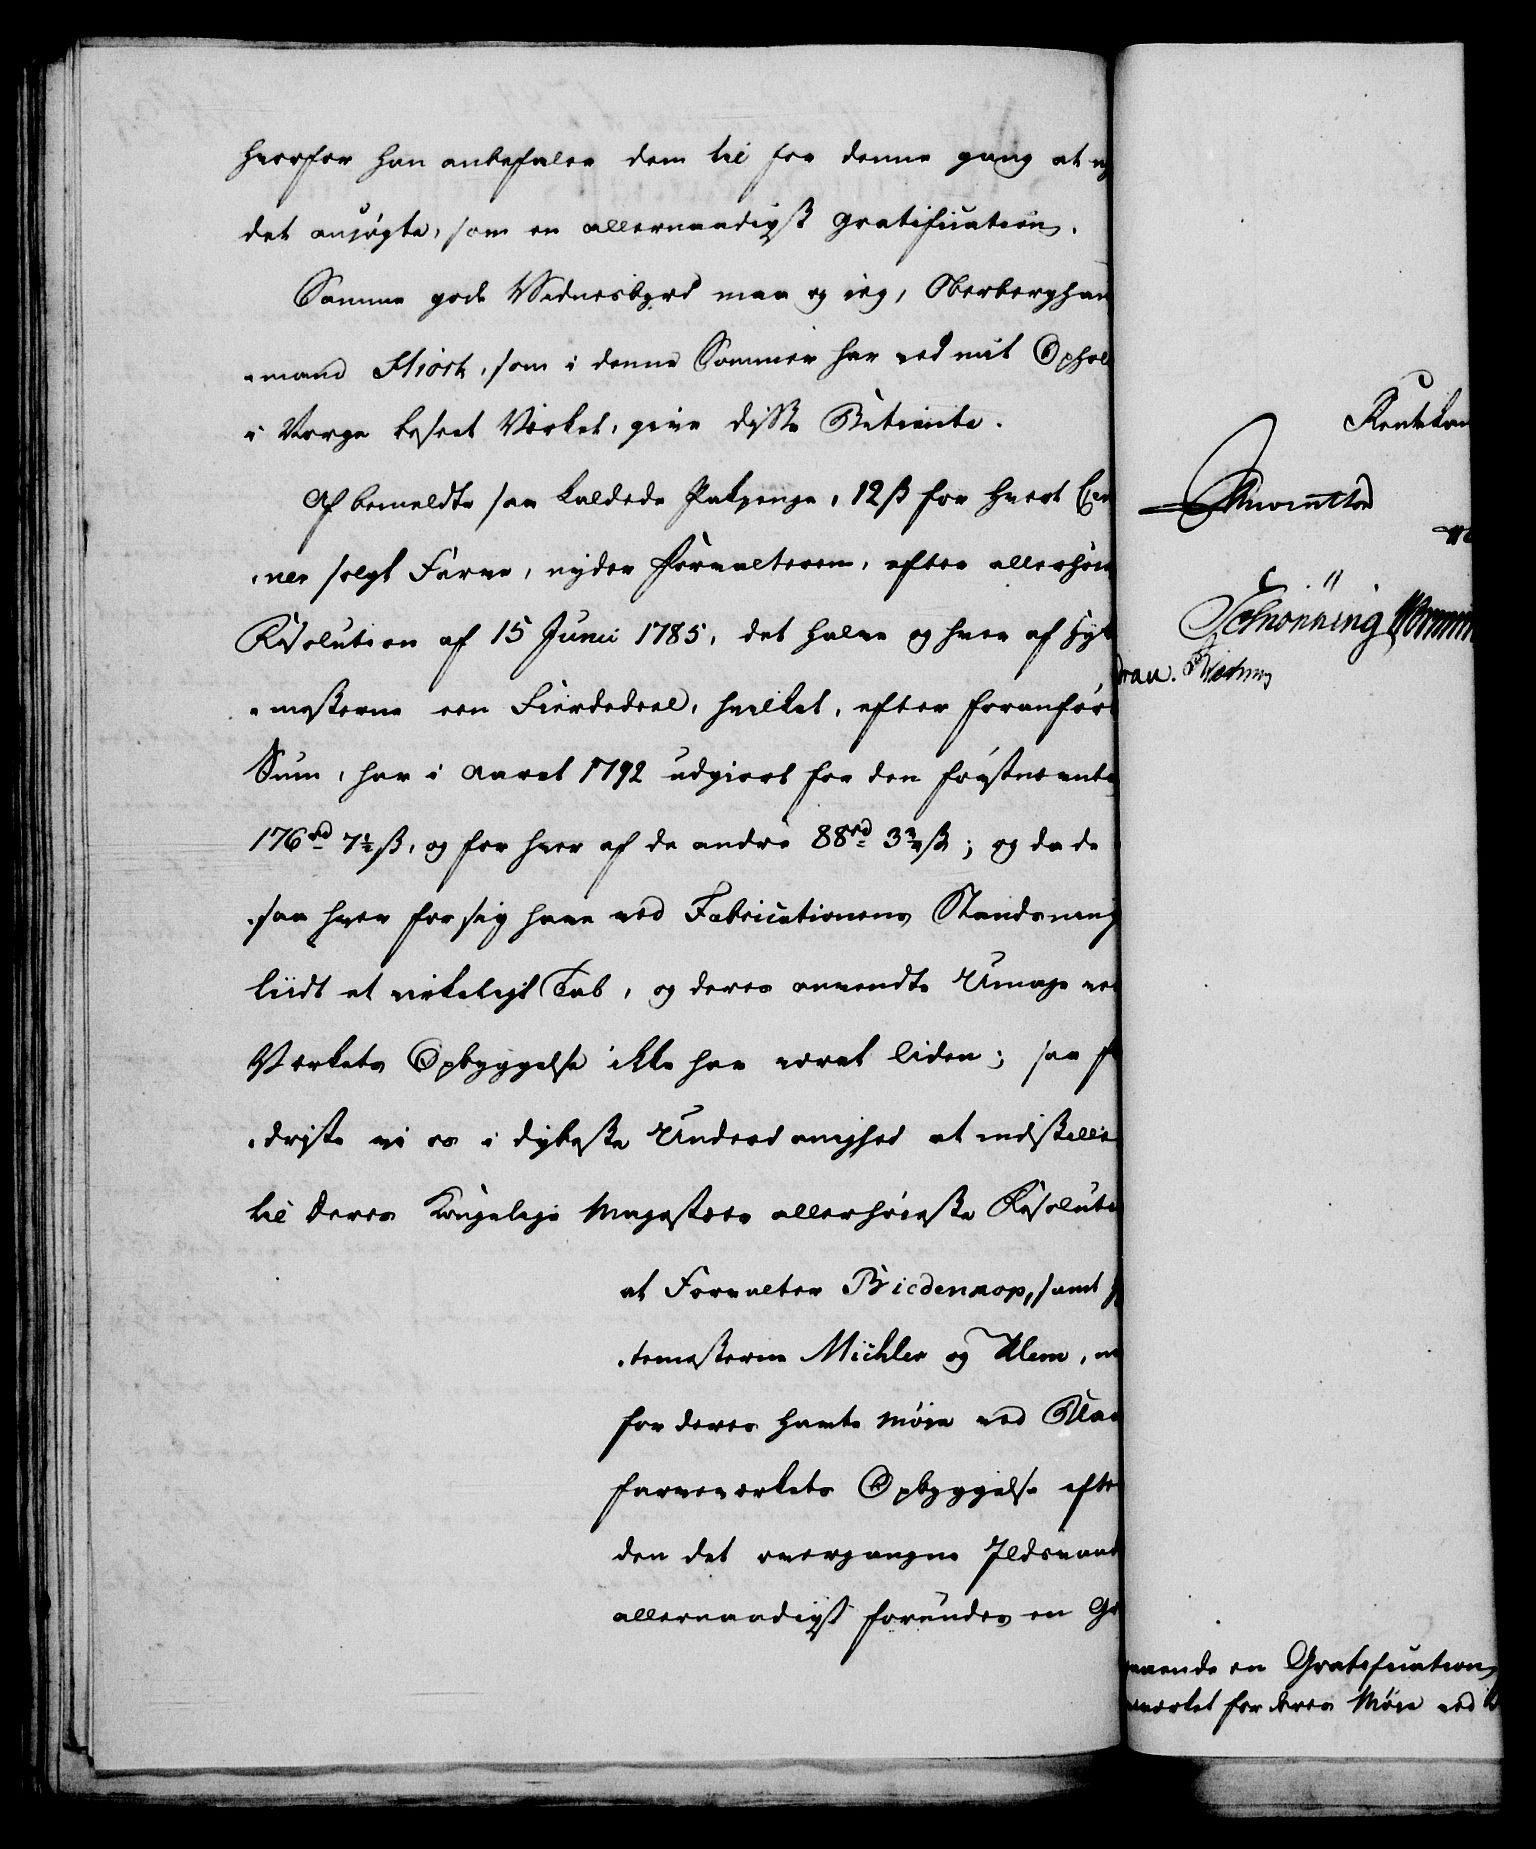 hvorfor han anbefaler dem til for denne gang at ny
det ansøgte, som en allernaadigst Gratification.
Samme gode Vidnesbyrd maa og ieg, Oberberghau
-mand Hiorth, som i denne Sommer har ved mit Ophol
i Norge beseet Værket, give disse Betiente.
Af bemeldte saa kaldede Pakpenge, 12 ß for hvert Cen
-ner solgt Farve, nyder Forvalteren, efter allerhøie
Resolution af 15 Junii 1785, det halve og hver af Hyt
-mesterne een Fierdedeel, hvilket, efter foranført
Sum, har i Aaret 1792 udgiort for den førstnævnte
176 rd 7½ ß, og for hver af de andre 88 rd 3¾ ß; og da de
saa hver for sig have ved Fabricationens Standsning
liidt et virkeligt Tab, og deres anvendte Umage ved
Værkets Opbyggelse ikke har været liden; saa f
-driste vi os i dybeste Underdanighed at indstille
til Deres Kongelige Majestæts allerhøieste Resoluti
at Forvalter Biedenkop, samt H
-temesterne Mühler og Klem, m
for deres havte Møie ved Blaa
farveværkets Opbyggelse efte
den det overgangne Ildsvaad
allernaadigst forundes en Gr
Rentekam
Schiønning
mand en Gratification
værket for deres Møie ved